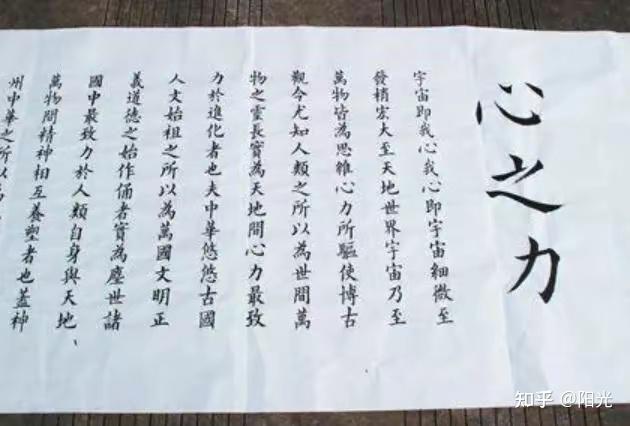 心之力
宇宙即我心我心即宇宙細微至
發梢宏大至天地世界宇宙乃至
萬物皆為思維心力所驅使博古
觀今尤知人類之所以為世間萬
物之靈長實為天地間心力最致
力於進化者也夫中華悠悠古國
人文始祖之所以為萬國文明正
義道德之始作俑者實為塵世諸
國中最致力於人類自身與天地、
萬物間精神相互養塑者也蓋神
州中華之所以為
知乎 @阳光